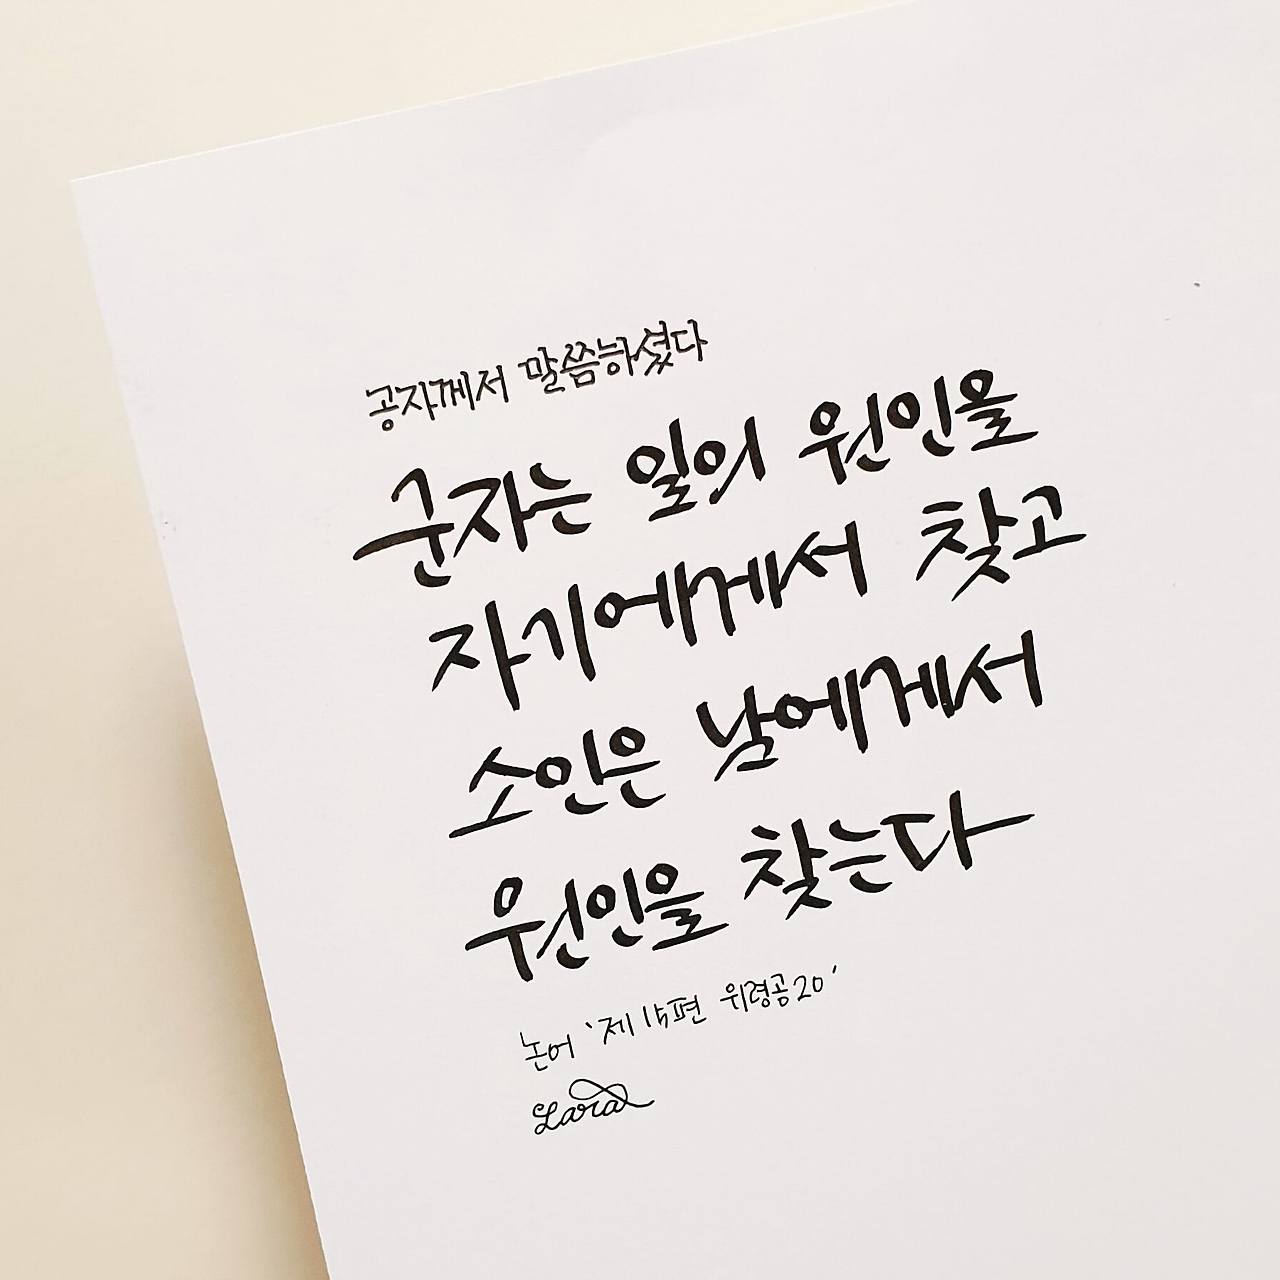 공자께서 말씀하셨다
군자는 일의 원인을
자기에게서 찾고
소인은 남에게서
원인을 찾는다
논어 '제 15편 위령공 20'
Lara